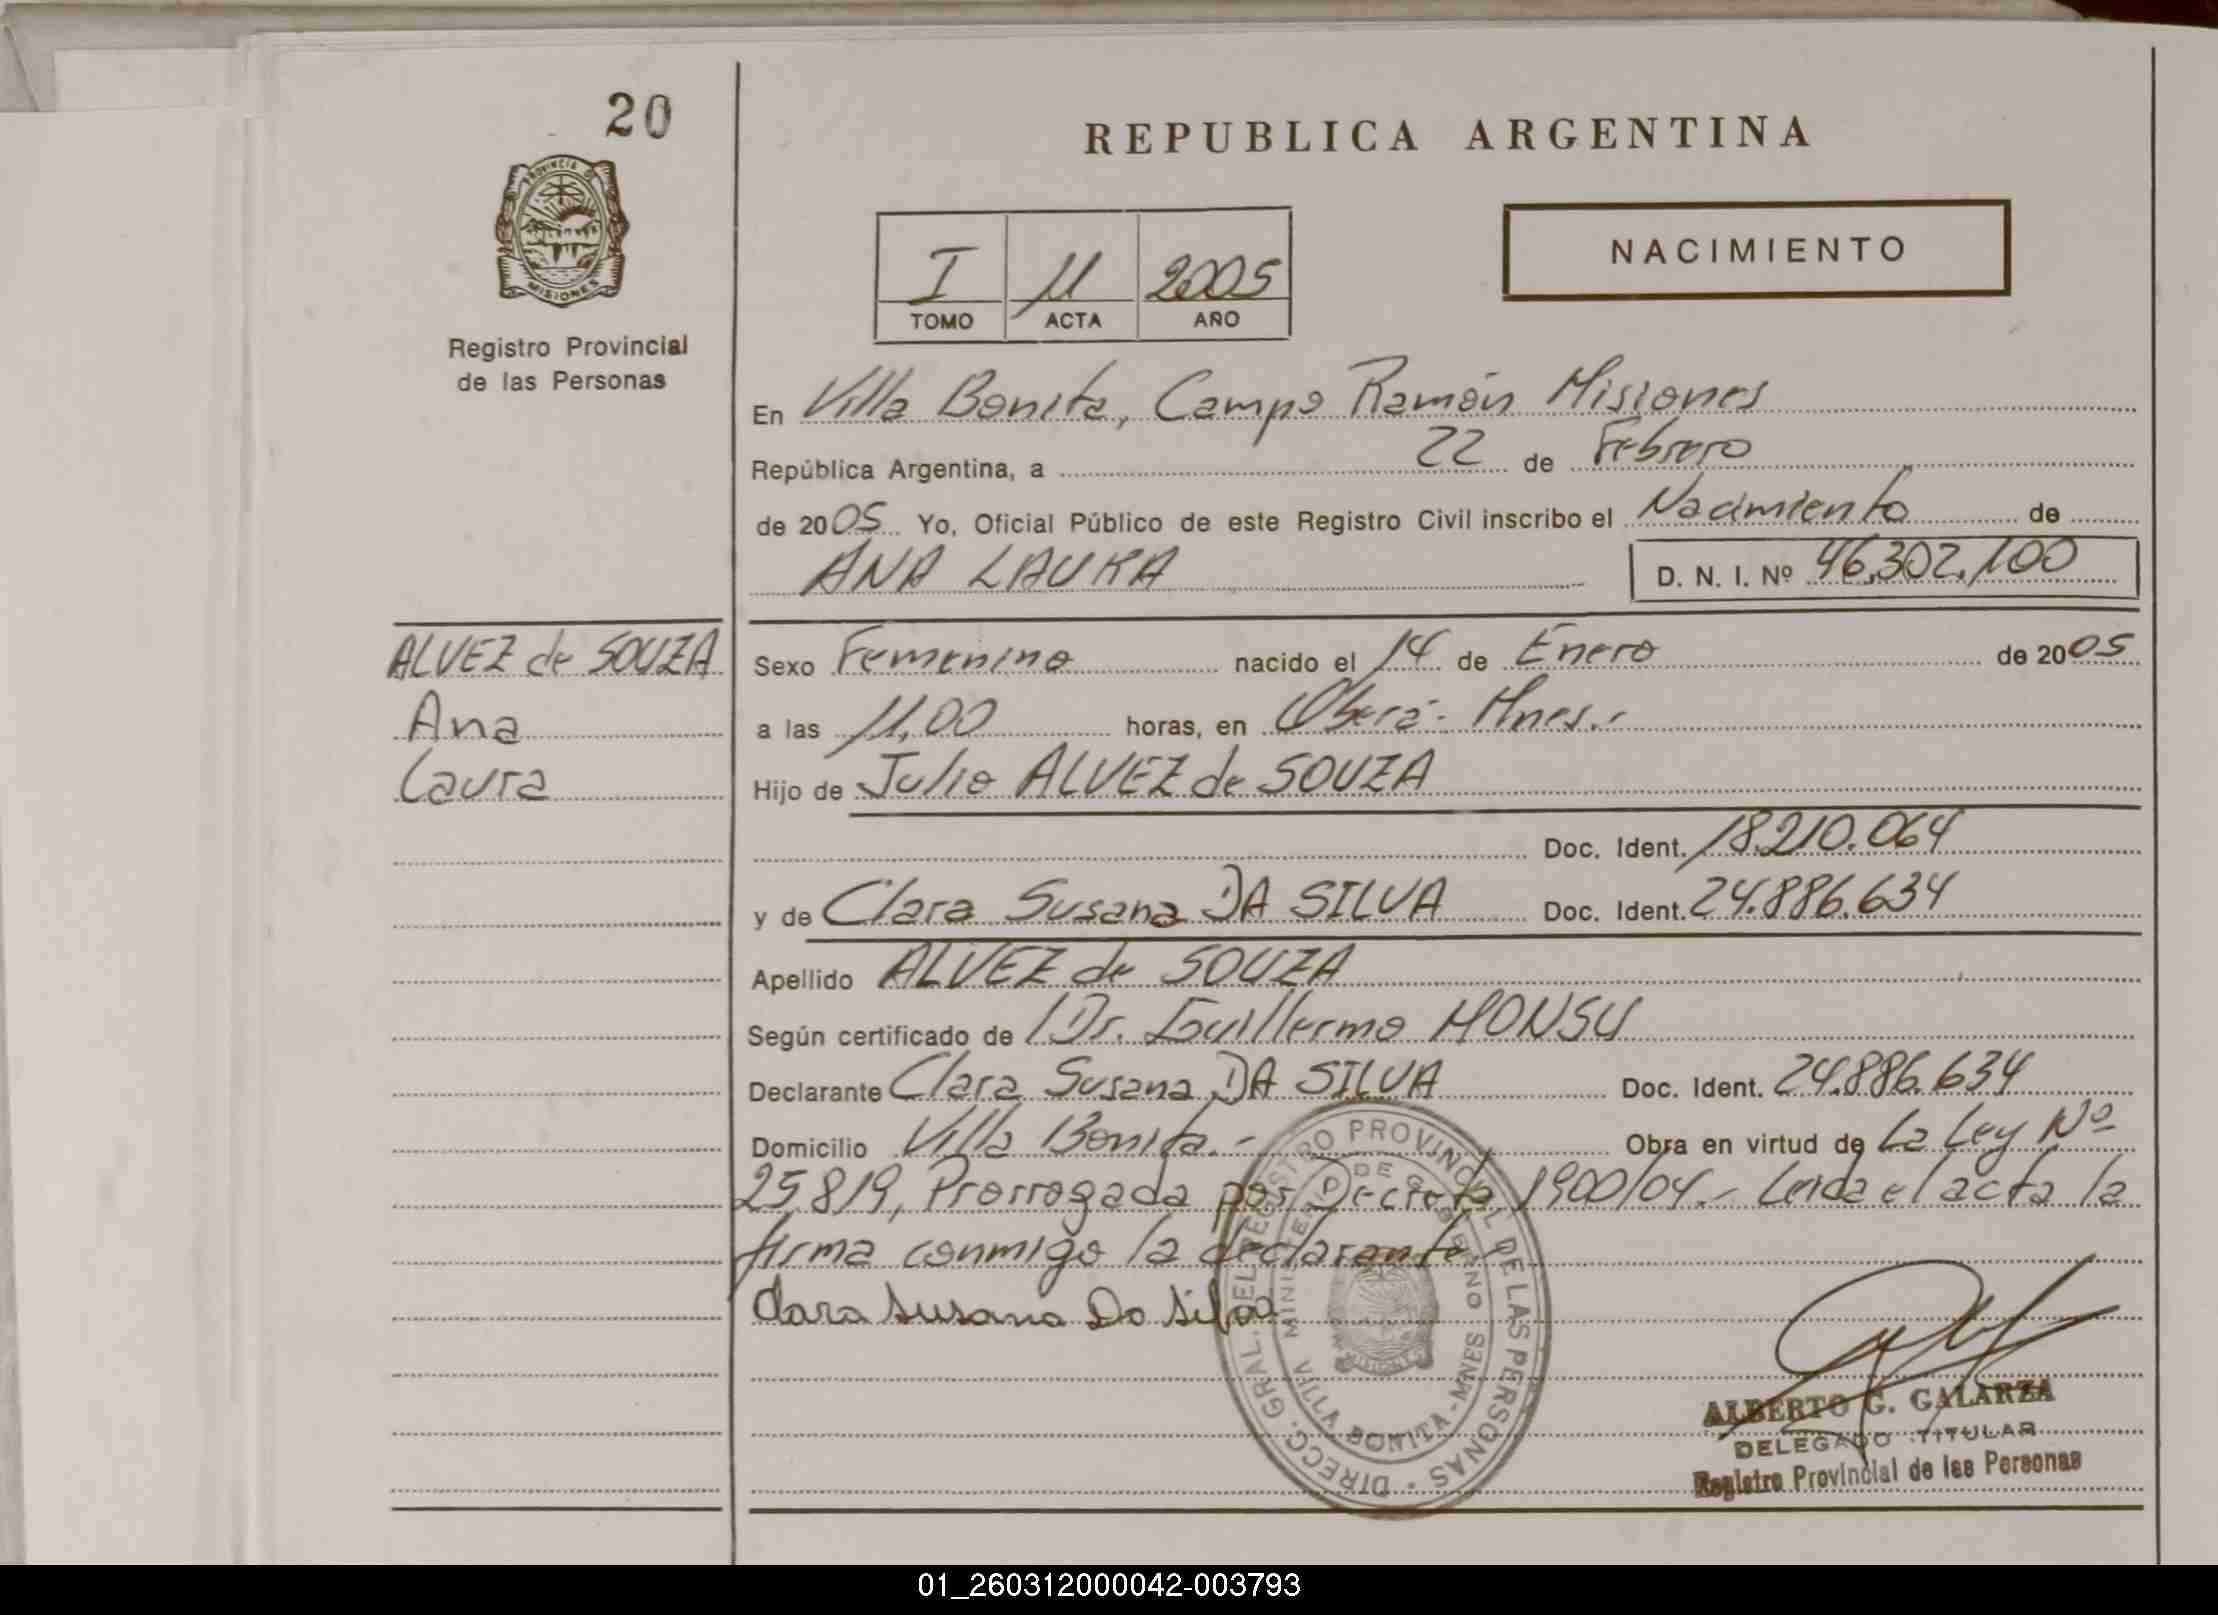 20
PROVINCIA DE
MISIONES
Registro Provincial
de las Personas
REPUBLICA ARGENTINA
NACIMIENTO
I 11 2005
TOMO ACTA AÑO
En Villa Bonita, Campo Ramón Misiones
República Argentina, a 22 de Febrero
de 2005 Yo, Oficial Público de este Registro Civil inscribo el Nacimiento de
ANA LAURA D. N. I. Nº 46.302.100
ALVEZ de SOUZA
Ana
Laura
Sexo Femenino nacido el 14 de Enero de 2005
a las 11,00 horas, en Oberá - Mnes.-
Hijo de Julio ALVEZ de SOUZA
Doc. Ident. 18.210.064
y de Clara Susana DA SILVA Doc. Ident. 24.886.634
Apellido ALVEZ de SOUZA
Según certificado de Dr. Guillermo MONSU
Declarante Clara Susana DA SILVA Doc. Ident. 24.886.634
Domicilio Villa Bonita.- Obra en virtud de La Ley Nº
25.819, Prorrogada por Decreto 1900/04.- Leida el acta la
firma conmigo la declarante
Clara Susana Da Silva
DIRECC. GRAL. DEL REGISTRO PROVINCIAL DE LAS PERSONAS
MINISTERIO DE GOBIERNO
VILLA BONITA - MNES
MISIONES
ALBERTO G. GALARZA
DELEGADO TITULAR
Registro Provincial de las Personas
01_260312000042-003793